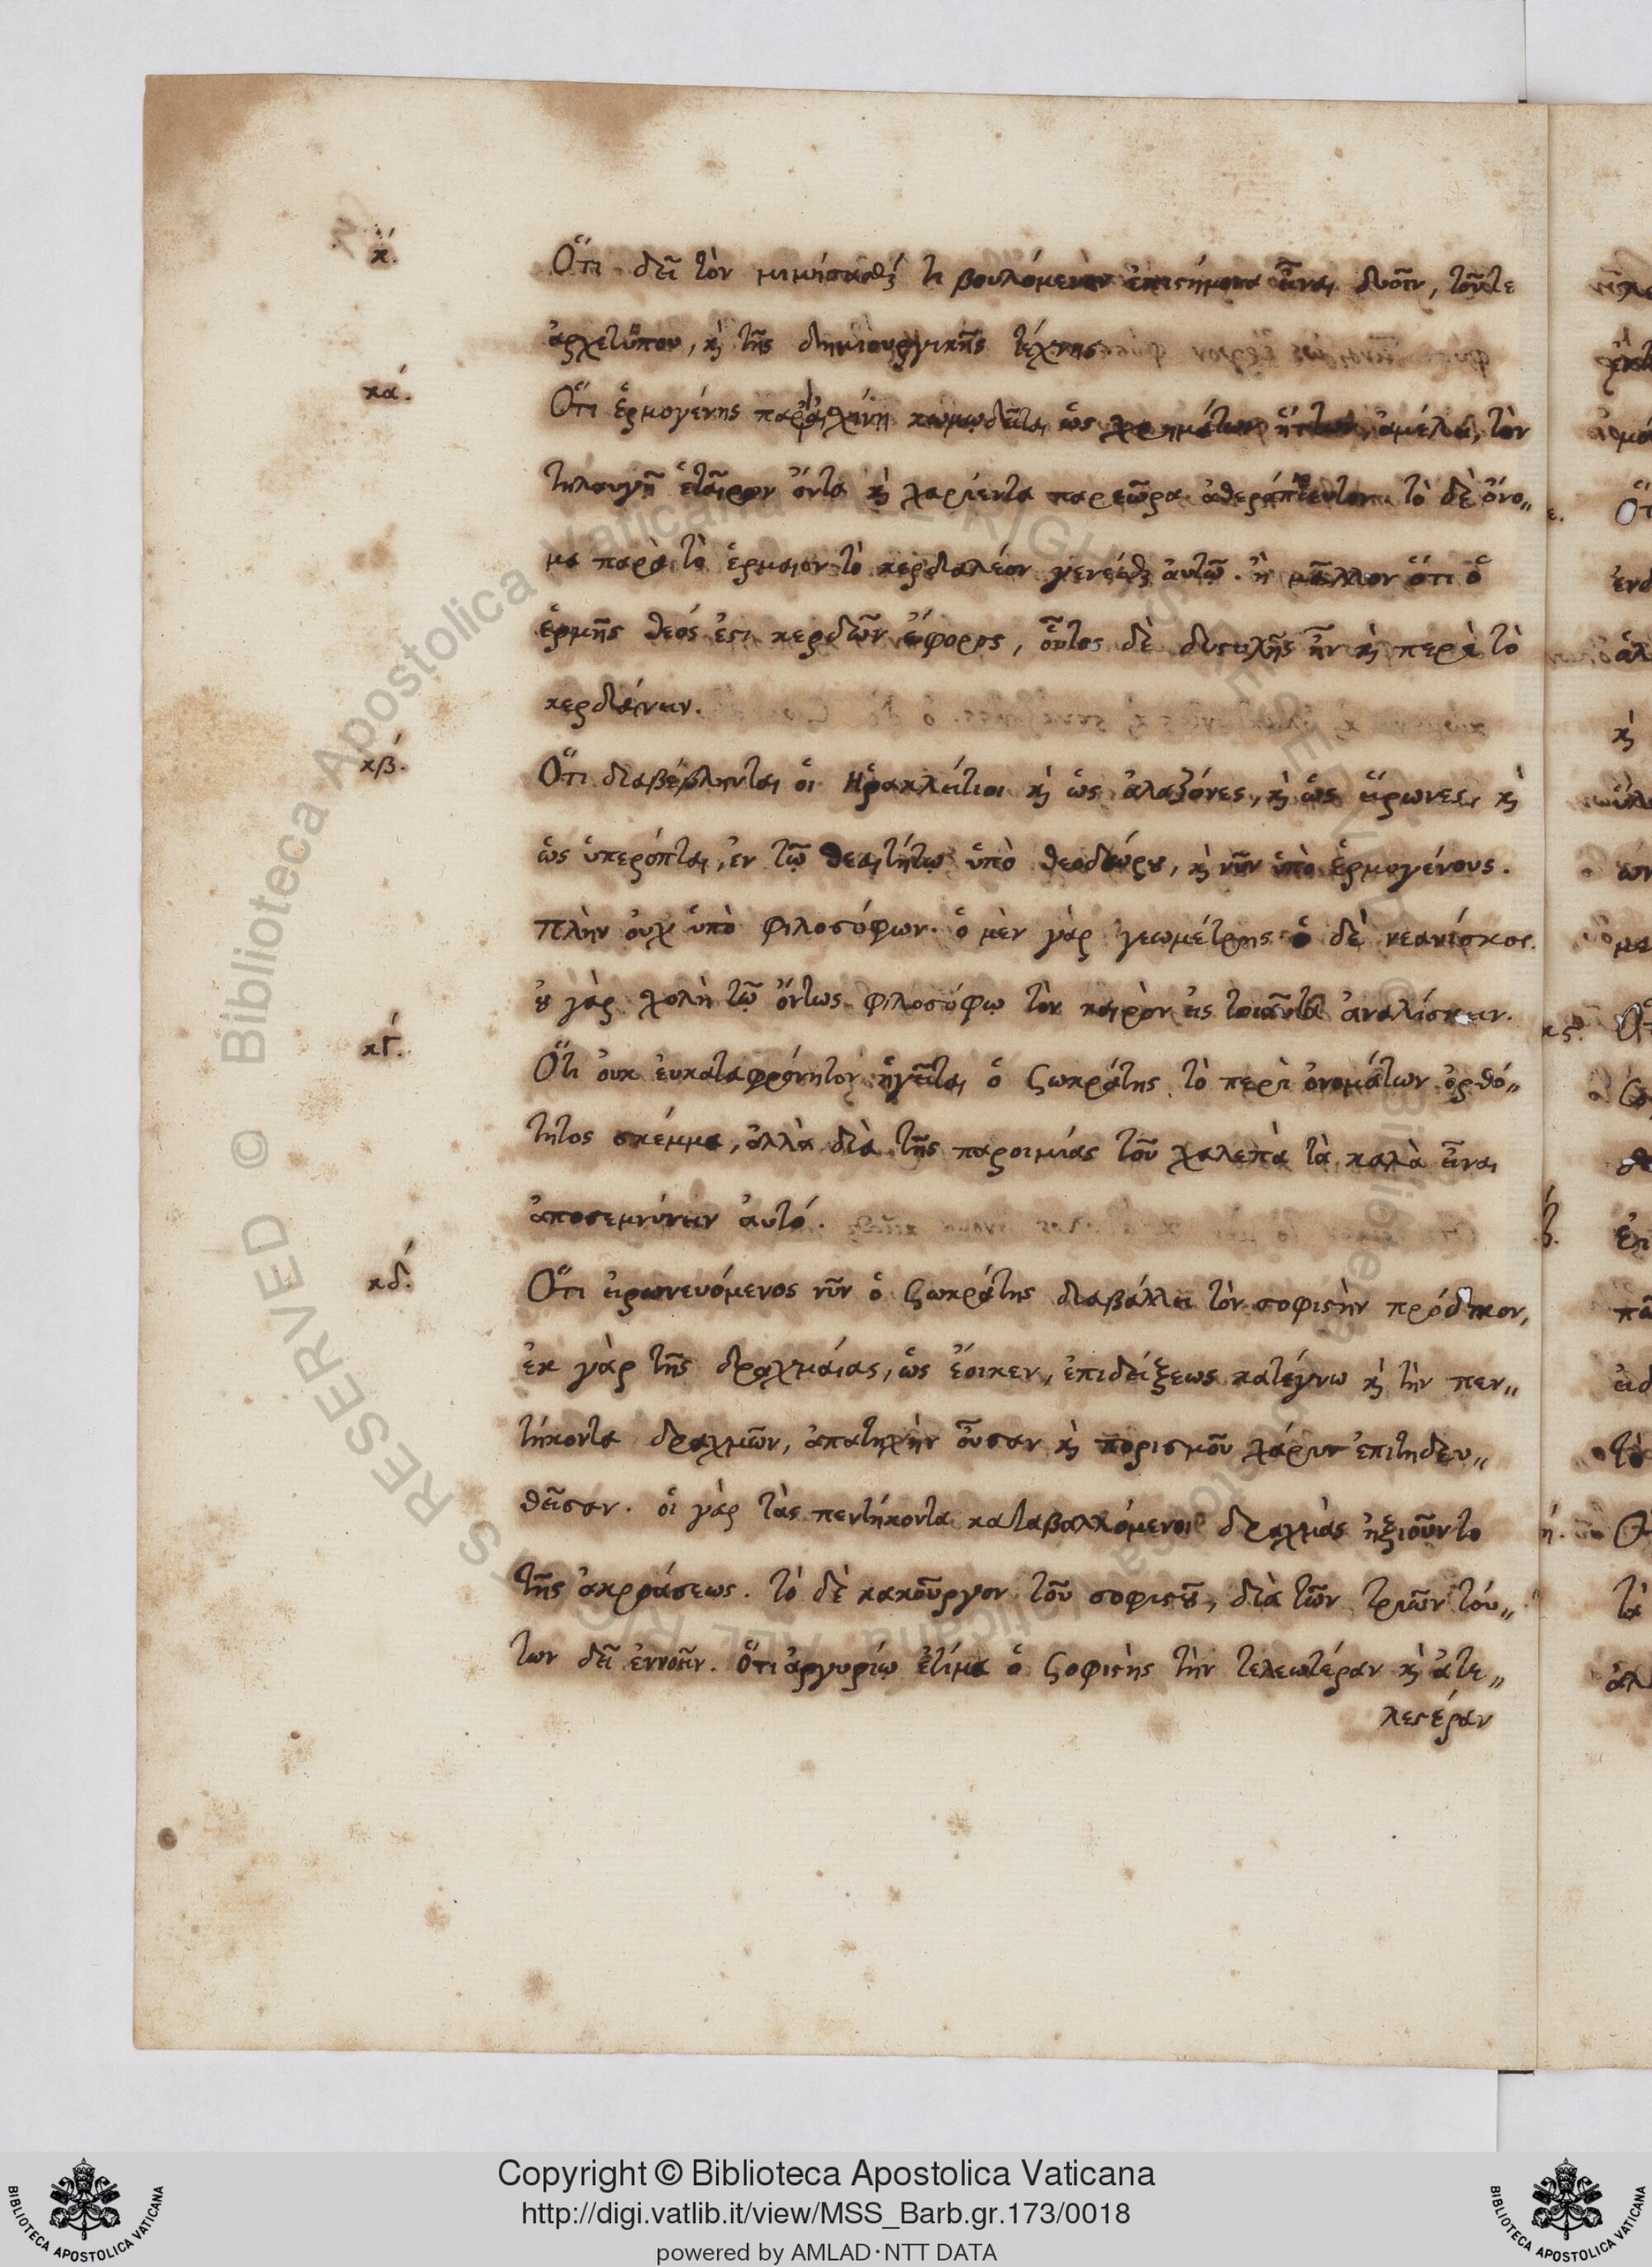 κ.
Ὅτι δεῖ τὸν μιμήσασθαί τι βουλόμενον ἐπιστήμονα εἶναι δυοῖν, τοῦτε
ἀρχετύπου, καὶ τῆς δημιουργικῆς τέχνης
κά.
Ὅτι ἑρμογένης κωμωδεῖται ὡς χρημάτων ἥττων, ἀμέλει, τὸν
τηλαυγῆ ἑταῖρον ὄντα καὶ χαρίεντα παρεώρα ἀθεράπευτον τὸ δὲ ὄνο„
μα παρὰ τὸ ἑρμαιον τὸ κερδαλέον γενέσθαι ἀυτῶ. ἢ μᾶλλον ὅτι ὁ
ἑρμῆς θεός ἐστι κερδῶν ἔφορος, οὗτος δὲ δυστυχὴς ἦν καὶ περὶ τὸ
κερδαίνειν.
κβ.
Ὅτι διαβέβληνται ὁι Ἡρακλείτιοι καὶ ὡς ἀλαζόνες, καὶ ὡς εἴρωνες, καὶ
ὡς ὑπερόπται, ἐν τῷ θεαιτήτῳ ὑπὸ θεοδώρου, καὶ νῦν ὑπὸ ἑρμογένους.
πλὴν ὀυχ ὑπὸ φιλοσόφων. ὁ μὲν γὰρ γεωμέτρης ὁ δὲ νεανίσκος.
ὀυ γὰρ σχολὴ τῷ ὄντως φιλοσόφῳ τὸν καιρὸν εἰς τοιαῦτα ἀναλίσκειν.
κγ.
Ὅτι ὀυκ ἐυκαταφρόνητον ἡγεῖται ὁ Σωκράτης τὸ περὶ ὀνομάτων ὀρθό„
τητος σκέμμα, ἀλλὰ διὰ τῆς παροιμίας τοῦ χαλεπὰ τὰ καλὰ εἶναι
ἀποσεμνύνειν ἀυτό.
κδ.
Ὅτι εἰρωνευόμενος νῦν ὁ Σωκράτης διαβάλλει τὸν σοφιστὴν πρόδικον,
ἐκ γὰρ τῆς δραχμαίας, ὡς ἔοικεν, ἐπιδείξεως κατέγνω καὶ τὴν πεν„
τήκοντα δραχμῶν, ἀπατηχὴν οὖσαν καὶ πορισμοῦ χάριν ἐπιτηδευ„
θεῖσαν. ὁι γὰρ τὰς πεντήκοντα καταβαλλόμενοι δραχμὰς ἠξιοῦντο
τῆς ἀκροάσεως. τὸ δὲ κακοῦργον τοῦ σοφιστοῦ, διὰ τῶν τριῶν τού„
των δεῖ ἐννοεῖν. Ὅτι ἀργυρίῳ ἐτίμα ὁ Σοφιστὴς τὴν τελεωτέραν καὶ ἀτε„
λεστέραν